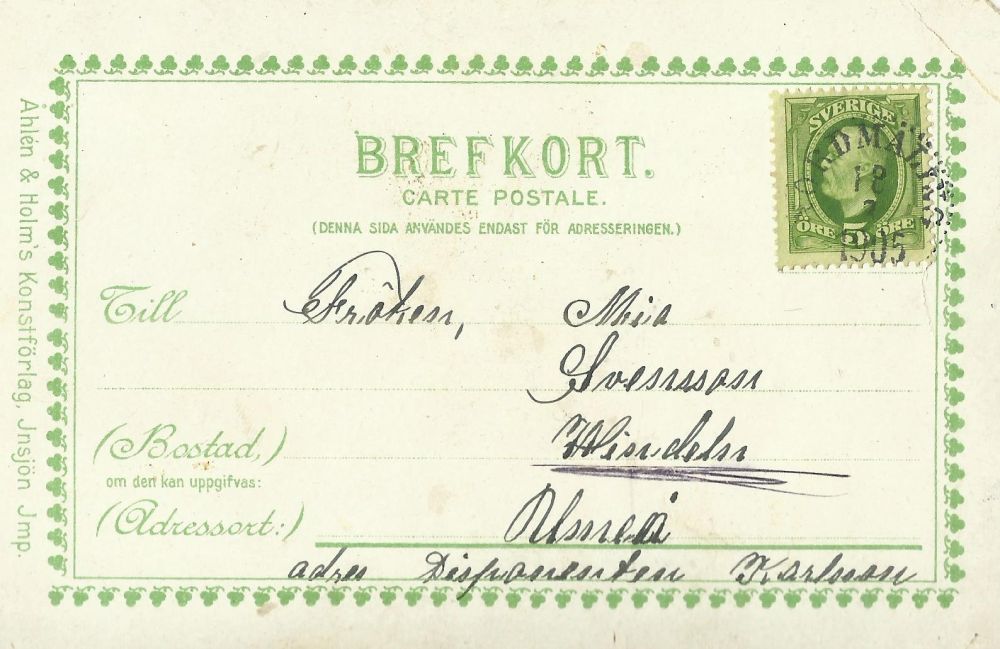 BREFKORT.
CARTE POSTALE.
(DENNA SIDA ANVÄNDES ENDAST FÖR ADRESSERINGEN.)
SVERIGE
ÖRE 5 ÖRE
18
1905
Till Fröken, Mia
Svensson
(Bostad,) Windeln
om den kan uppgifvas:
(Adressort:) Umeå
adres Disponenten Karlsson
Åhlén & Holm's Konstförlag, Jnsjön Jmp.